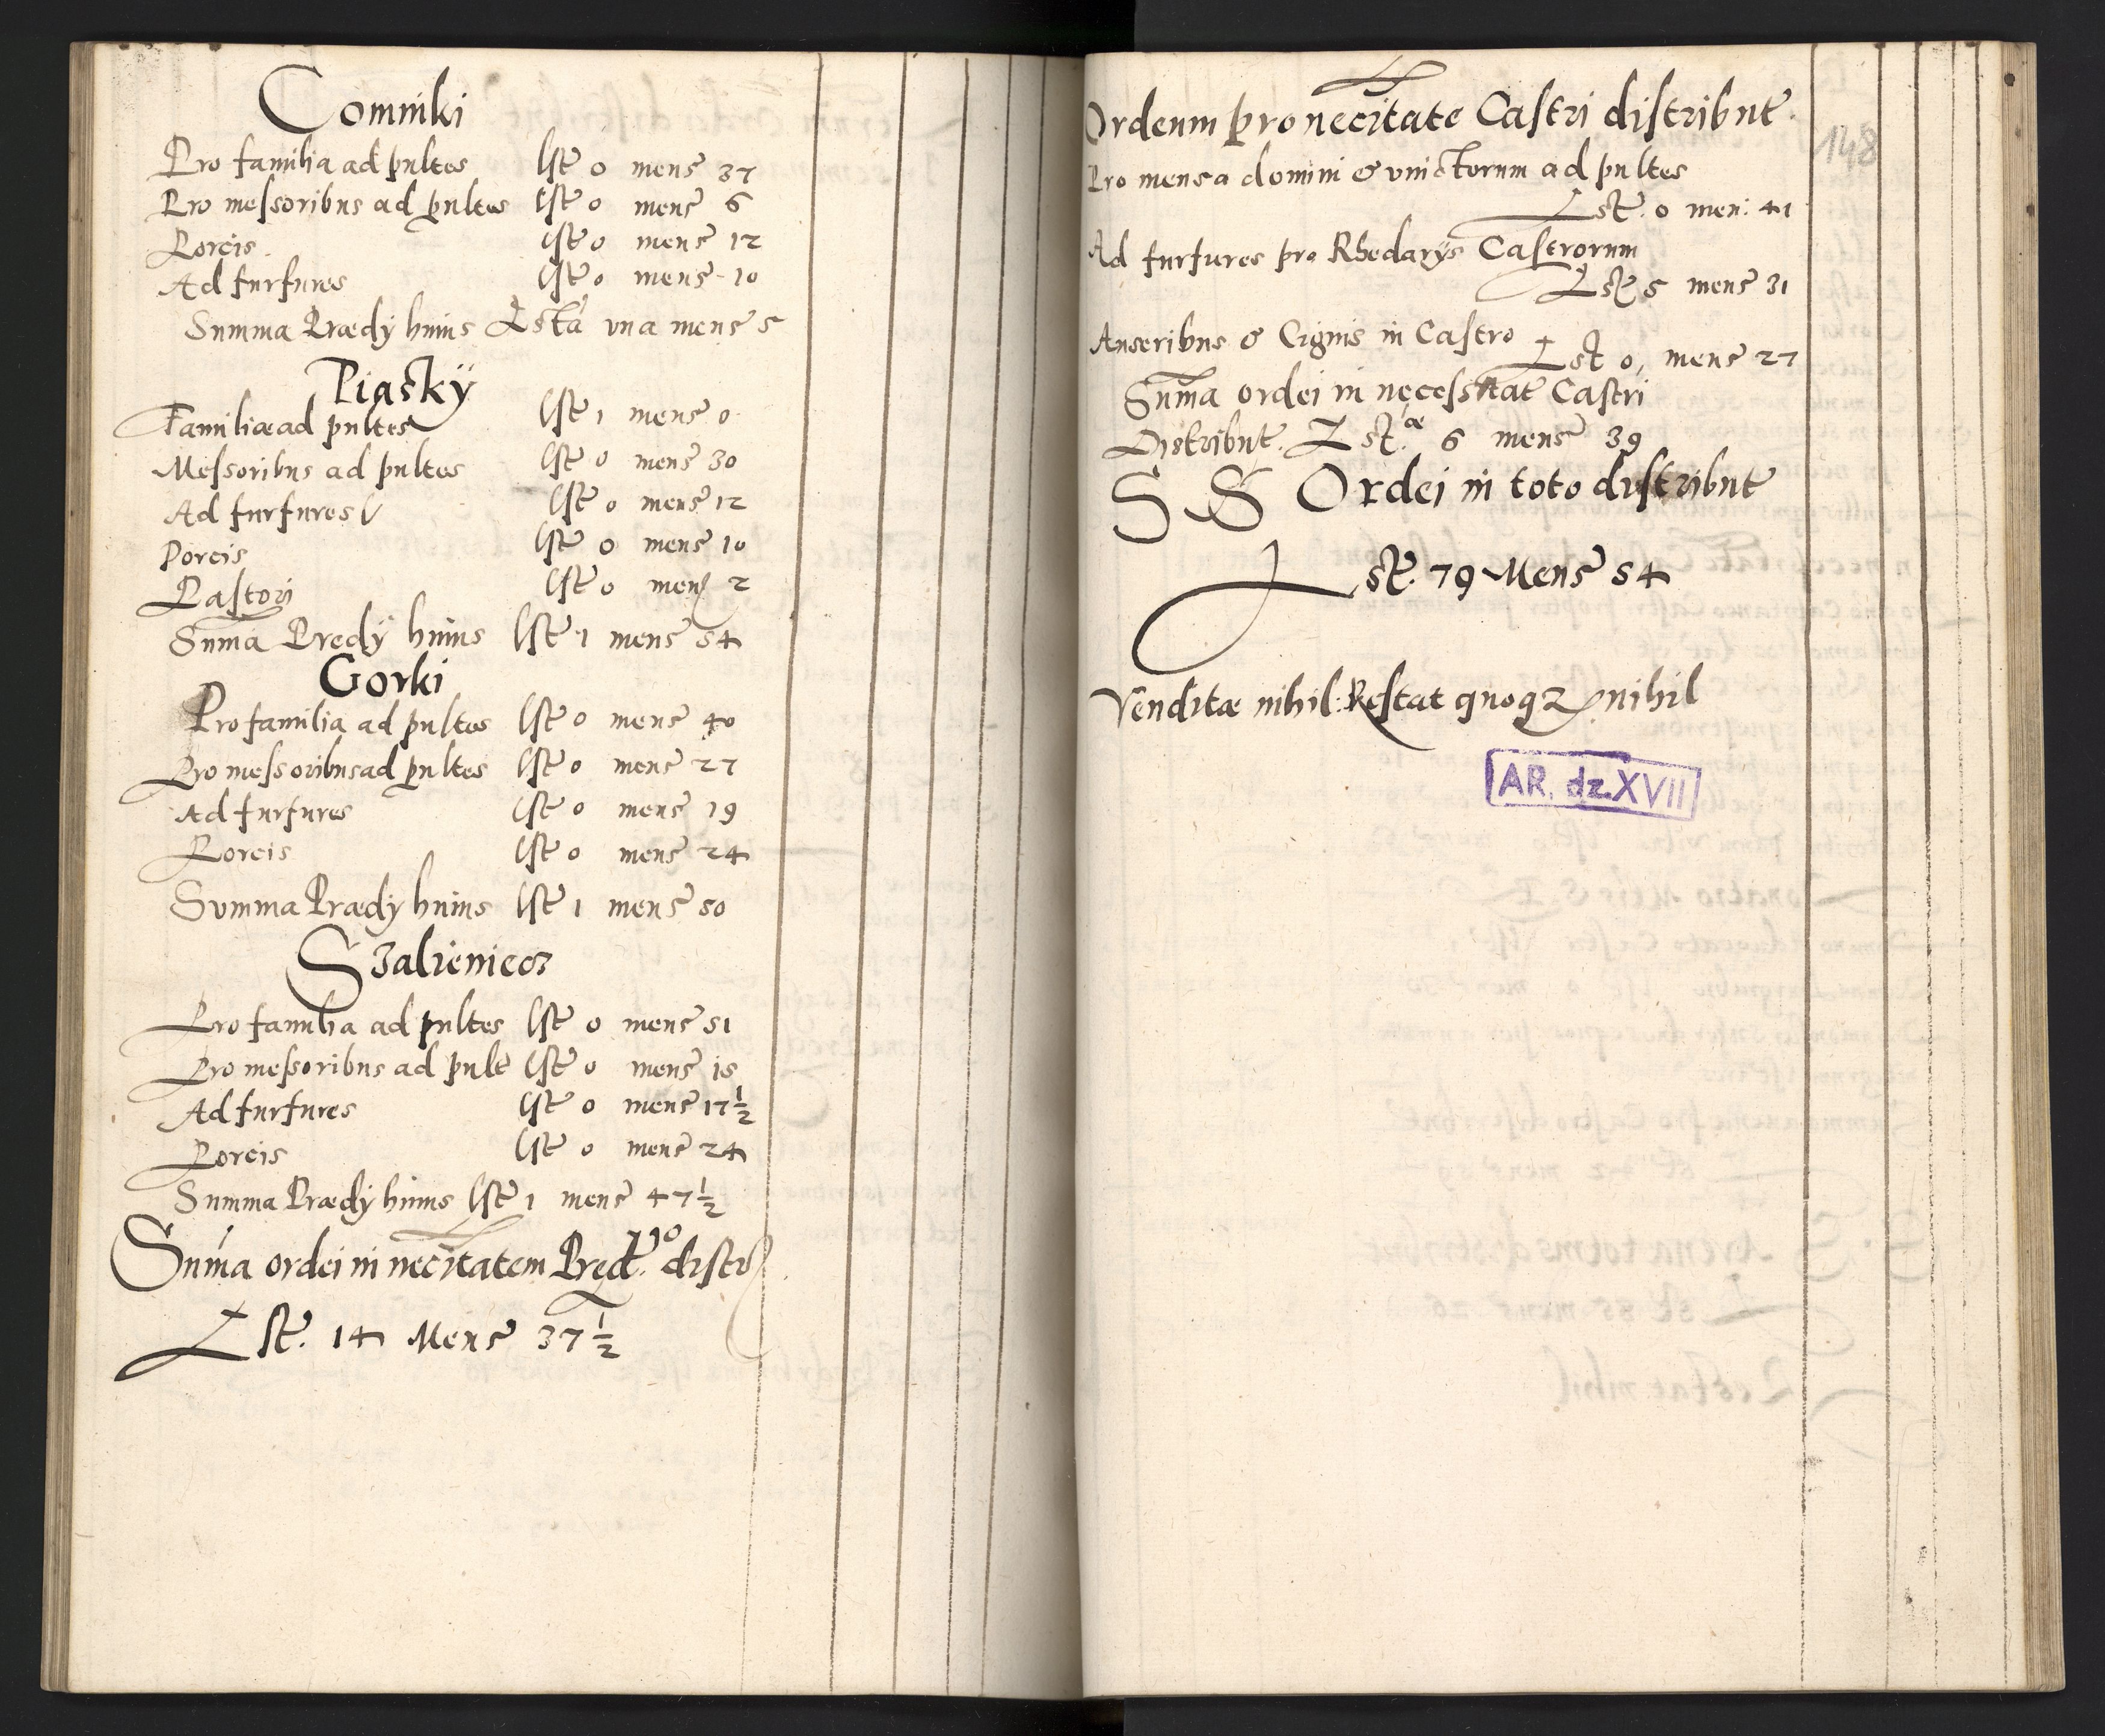 Comniki
Pro familia ad pultes Lste 0 mens 37
Pro messoribus ad pultes Lste 0 mens 6
Porcis. Lste 0 mens 12
Ad furfures Lste 0 mens 10
Summa Prædÿ huius Lsta una mens 5
Piaskÿ
Familiæ ad pultes Lste 1 mens 0
Messoribus ad pultes Lste 0 mens 30
Ad furfures Lste 0 mens 12
Porcis Lste 0 mens 10
Pastori Lste 0 mens 2
Suma Predÿ huius Lste 1 mens 54
Gorki
Pro familia ad pultes Lste 0 mens 40
Pro messoribus ad pultes Lste 0 mens 27
Ad furfures Lste 0 mens 19
Porcis Lste 0 mens 24
Summa Prædÿ huius Lste 1 mens 50
Szalieniecz
Pro familia ad pultes Lste 0 mens 51
Pro messoribus ad pult Lste 0 mens 15
Ad furfures Lste 0 mens 17 1/2
Porcis Lste 0 mens 24
Summa Prædÿ huius Lste 1 mens 47 1/2
Suma ordei in necitatem Pred. distr
Lst. 14 Mens 37 1/2
Ordeum pro necitate Castri distribut.
148
Pro mensa domini & vinctorum ad pultes
Lst. 0 men: 41
Ad furfures pro Rhedarÿs Castrorum
Lst 5 mens 31
Anseribus & Cignis in Castro Lst 0, mens 27
Suma ordei in necessitat Castri
Distribut. Lst.æ 6 mens 39
S S Ordei in toto distribut
Lst. 79 Mens 54
Venditæ nihil: Restat quoqz nihil
AR. dz. XVII